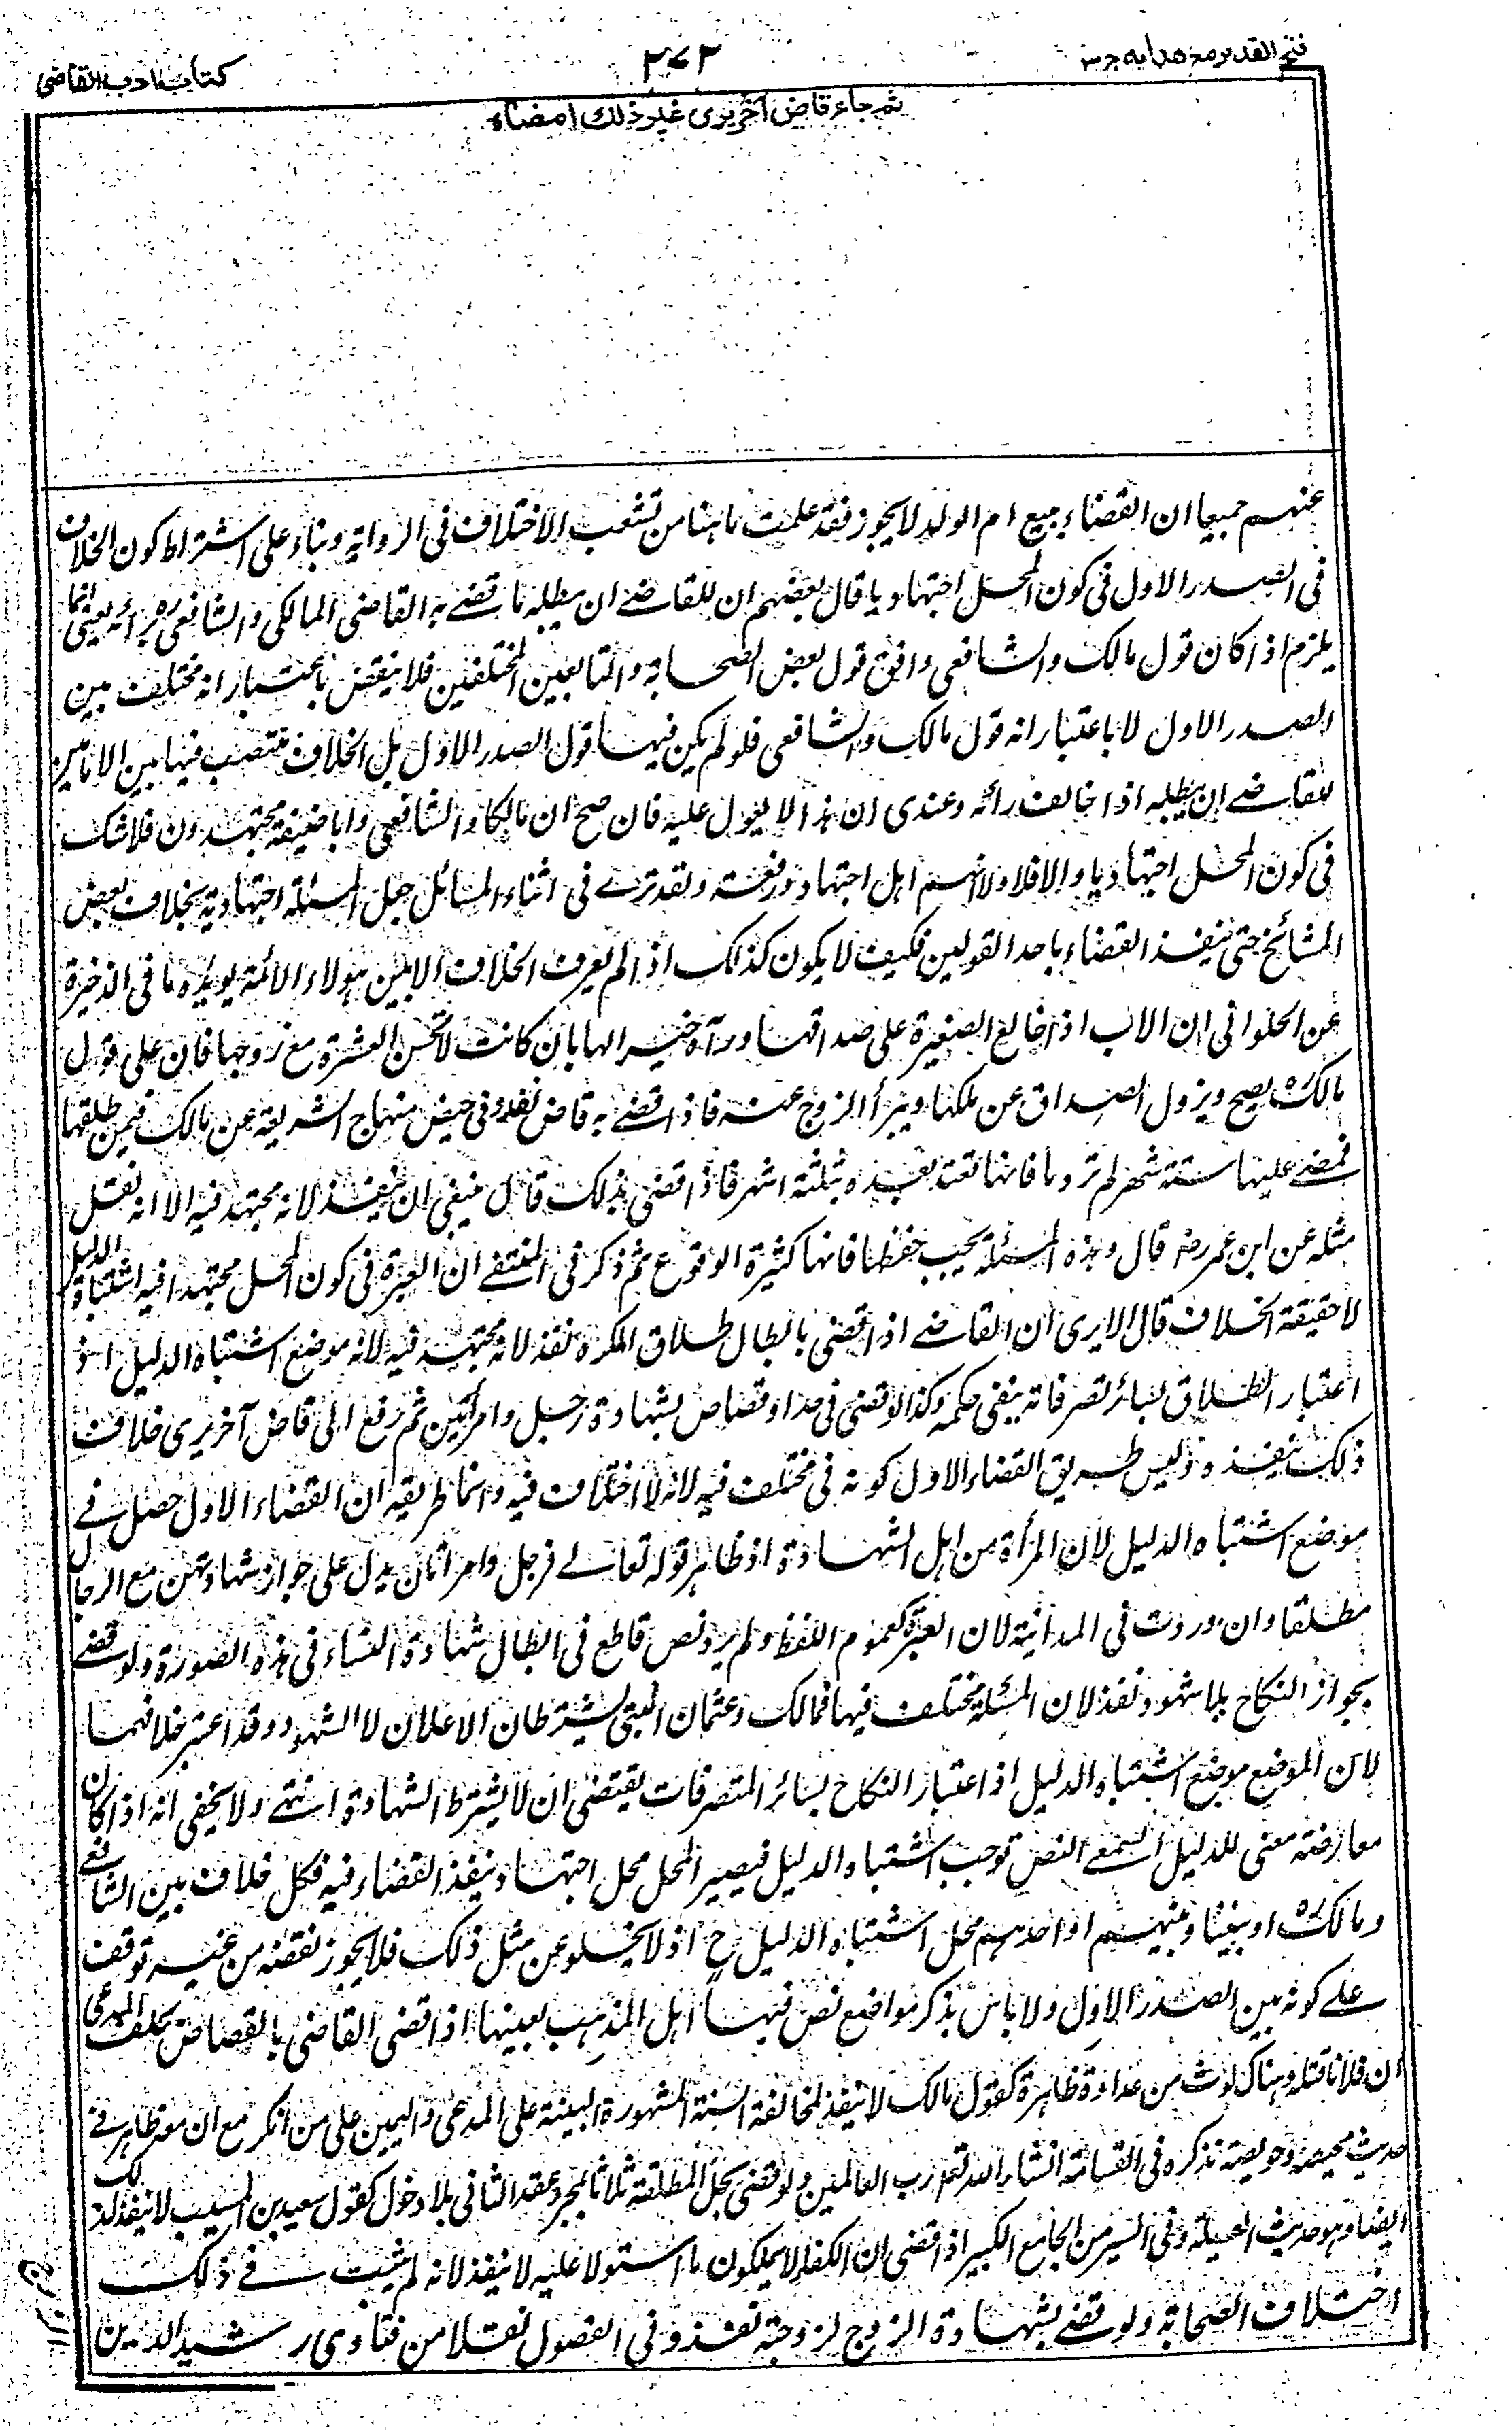 فتح القدير مع هدايه ج ٣
٢٧٢
كتاب ادب القاضى
ثم جاء قاض آخر يرى غير ذلك امضاه
عنهم جميعا ان القضاء ببيع ام الولد لا يجوز فقد علمت ما هنا من تشعب الاختلاف فى الرواية وبناء على اشتراط كون الخلاف
فى الصدر الاول فى كون المحل اجتهاديا قال بعضهم ان للقاضے ان يبطله ما قضے به القاضى المالكى والشافعىؒ برأئه يعنى انما
يلزم اذا كان قول مالك والشافعى وافق قول بعض الصحابة والتابعين المختلفين فلا ينقض باعتبار انه مختلف بين
الصدر الاول لا باعتبار انه قول مالك والشافعى فلو لم يكن فيها قول الصدر الاول بل الخلاف مقتضب فيها بين الامامين
للقاضے ان يبطله اذا خالف رائه وعندى ان هذا لا يعول عليه فان صح ان مالكا والشافعى وابا حنيفة مجتهدون فلا شك
فى كون المحل اجتهاديا والا فلا ولا انهم اهل اجتهاد ورفعة ولقد ترے فى اثناء المسائل جعل المسئلة اجتهادية بخلاف بعض
المشائخ حتى ينفذ القضاء باحد القولين فكيف لا يكون كذلك اذا لم يعرف الخلاف الا بين هولاء الأئمة يويده ما فى الذخيرة
عن الحلوانى ان الاب اذا خالع الصغيرة على صداقها ورآه خيرا لها بان كانت لا تحسن العشرة مع زوجها فان على قول
مالكؒ يصح ويزول الصداق عن ملكها ويبرأ الزوج عنه فاذا قضے به قاض نفذ وفى حيض منهاج الشريعة عن مالك فيمن طلقها
فمضے عليها ستة اشهر لم تر دما فانها تعتد بعده بثلثة اشهر فاذا قضى بذلك قاض ينبغى ان ينفذ لانه مجتهد فيه الا انه نقل
مثله عن ابن عمرؓ قال وهذه المسئلة يجب حفظها فانها كثيرة الوقوع ثم ذكر فى المنتقے ان العبرة فى كون المحل مجتهدا فيه اشتباه الدليل
لا حقيقة الخلاف قال الا يرى ان القاضے اذا قضى بابطال طلاق المكره نفذ لانه مجتهد فيه لانه موضع اشتباه الدليل اذ
اعتبار الطلاق بسائر تصرفاته ينفى حكمه وكذا لو قضى فى حد او قصاص بشهادة رجل وامرأتين ثم رفع الى قاض آخر يرى خلاف
ذلك ينفذه وليس طريق القضاء الاول كونه فى مختلف فيه لانه لا اختلاف فيه وانما طريقه ان القضاء الاول حصل فے
موضع اشتباه الدليل لان المرأة من اهل الشهادة اذ ظاهر قوله تعالے فرجل وامرأتان يدل على جواز شهادتهن مع الرجال
مطلقا وان وردت فى المداينة لان العبرة لعموم اللفظ ولم يرد نص قاطع فى ابطال شهادة النساء فى هذه الصورة ولو قضے
بجواز النكاح بلا شهود نفذ لان المسئلة مختلف فيها فمالك وعثمان البتى يشترطان الاعلان لا الشهود وقد اعتبر خلافهما
لان الموضع موضع اشتباه الدليل اذ اعتبار النكاح بسائر التصرفات يقتضى ان لا يشترط الشهادة انتهے ولا يخفى انه اذا كان
معارضة معنى للدليل السمعے النص توجب اشتباه الدليل فيصير المحل محل اجتهاد ينفذ القضاء فيه فكل خلاف بين الشافعے
ومالكؒ او بيننا وبينهم او احدهم محل اشتباه الدليل ح اذ لا يخلو عن مثل ذلك فلا يجوز نقضه من غير توقف
علے كونه بين الصدر الاول ولا باس بذكر مواضع نص فيها اهل المذهب بعينها اذا قضى القاضى بالقصاص بحلف المدعى
ان فلانا قتله وهناك لوث من عداوة ظاهرة كقول مالك لا ينفذ لمخالفة السنة المشهورة البينة على المدعى واليمين على من انكر مع ان معه ظاهر فے
حديث محيصة وحويصة نذكره فى القسامة انشاء الله تعم رب العالمين ولو قضى بحل المطلقة ثلاثا بمجرد عقد الثانى بلا دخول كقول سعيد بن المسيب لا ينفذ لذلك
ايضا وهو حديث العسيلة وفى السير من الجامع الكبير اذا قضى ان الكفار لا يملكون ما استولوا عليه لا ينفذ لانه لم يثبت فے ذلك
اختلاف الصحابة ولو قضے بشهادة الزوج لزوجته نفذ وفى الفصول نقلا من فتاوى رشيد الدين